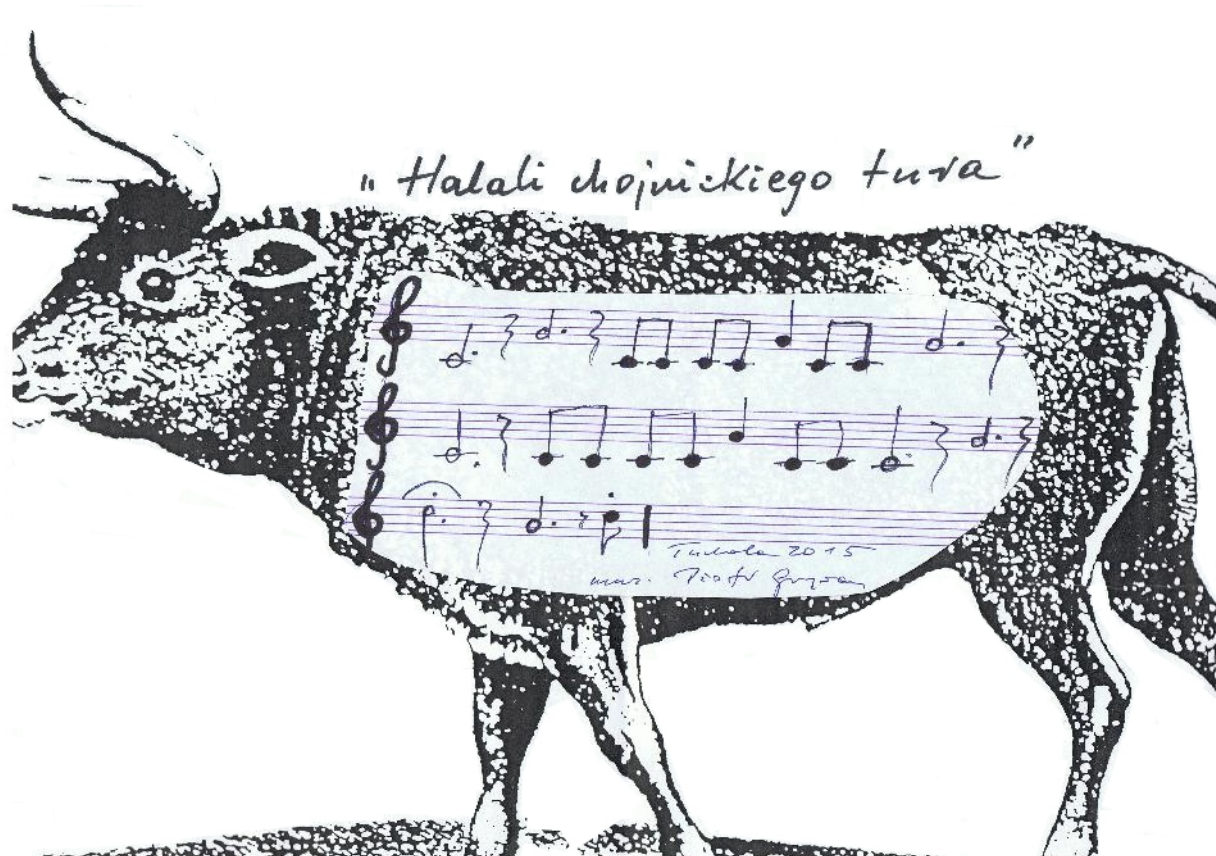 „Halali chojnickiego tura”
Tuchola 2015
muz. Piotr